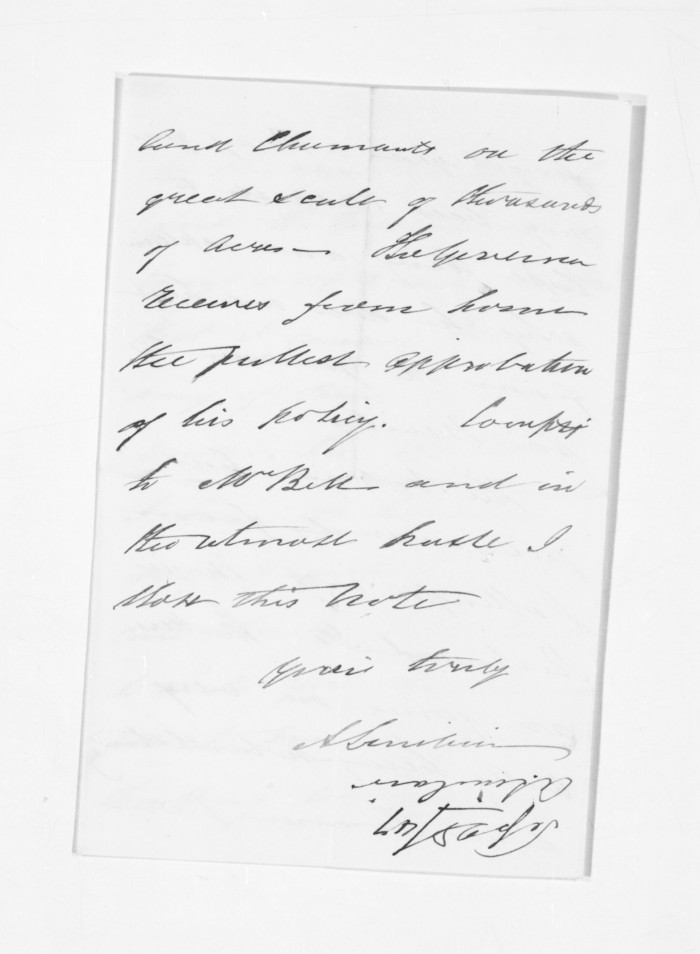 Land Claimants on the
great scale of thousands
of acres — The Governor
receives from home
the fullest approbation
of his policy. Compts
to Mrs Bell and in
the utmost haste I
close this note
Yours truly
A Sinclair
A Sinclair
Sept 25/47